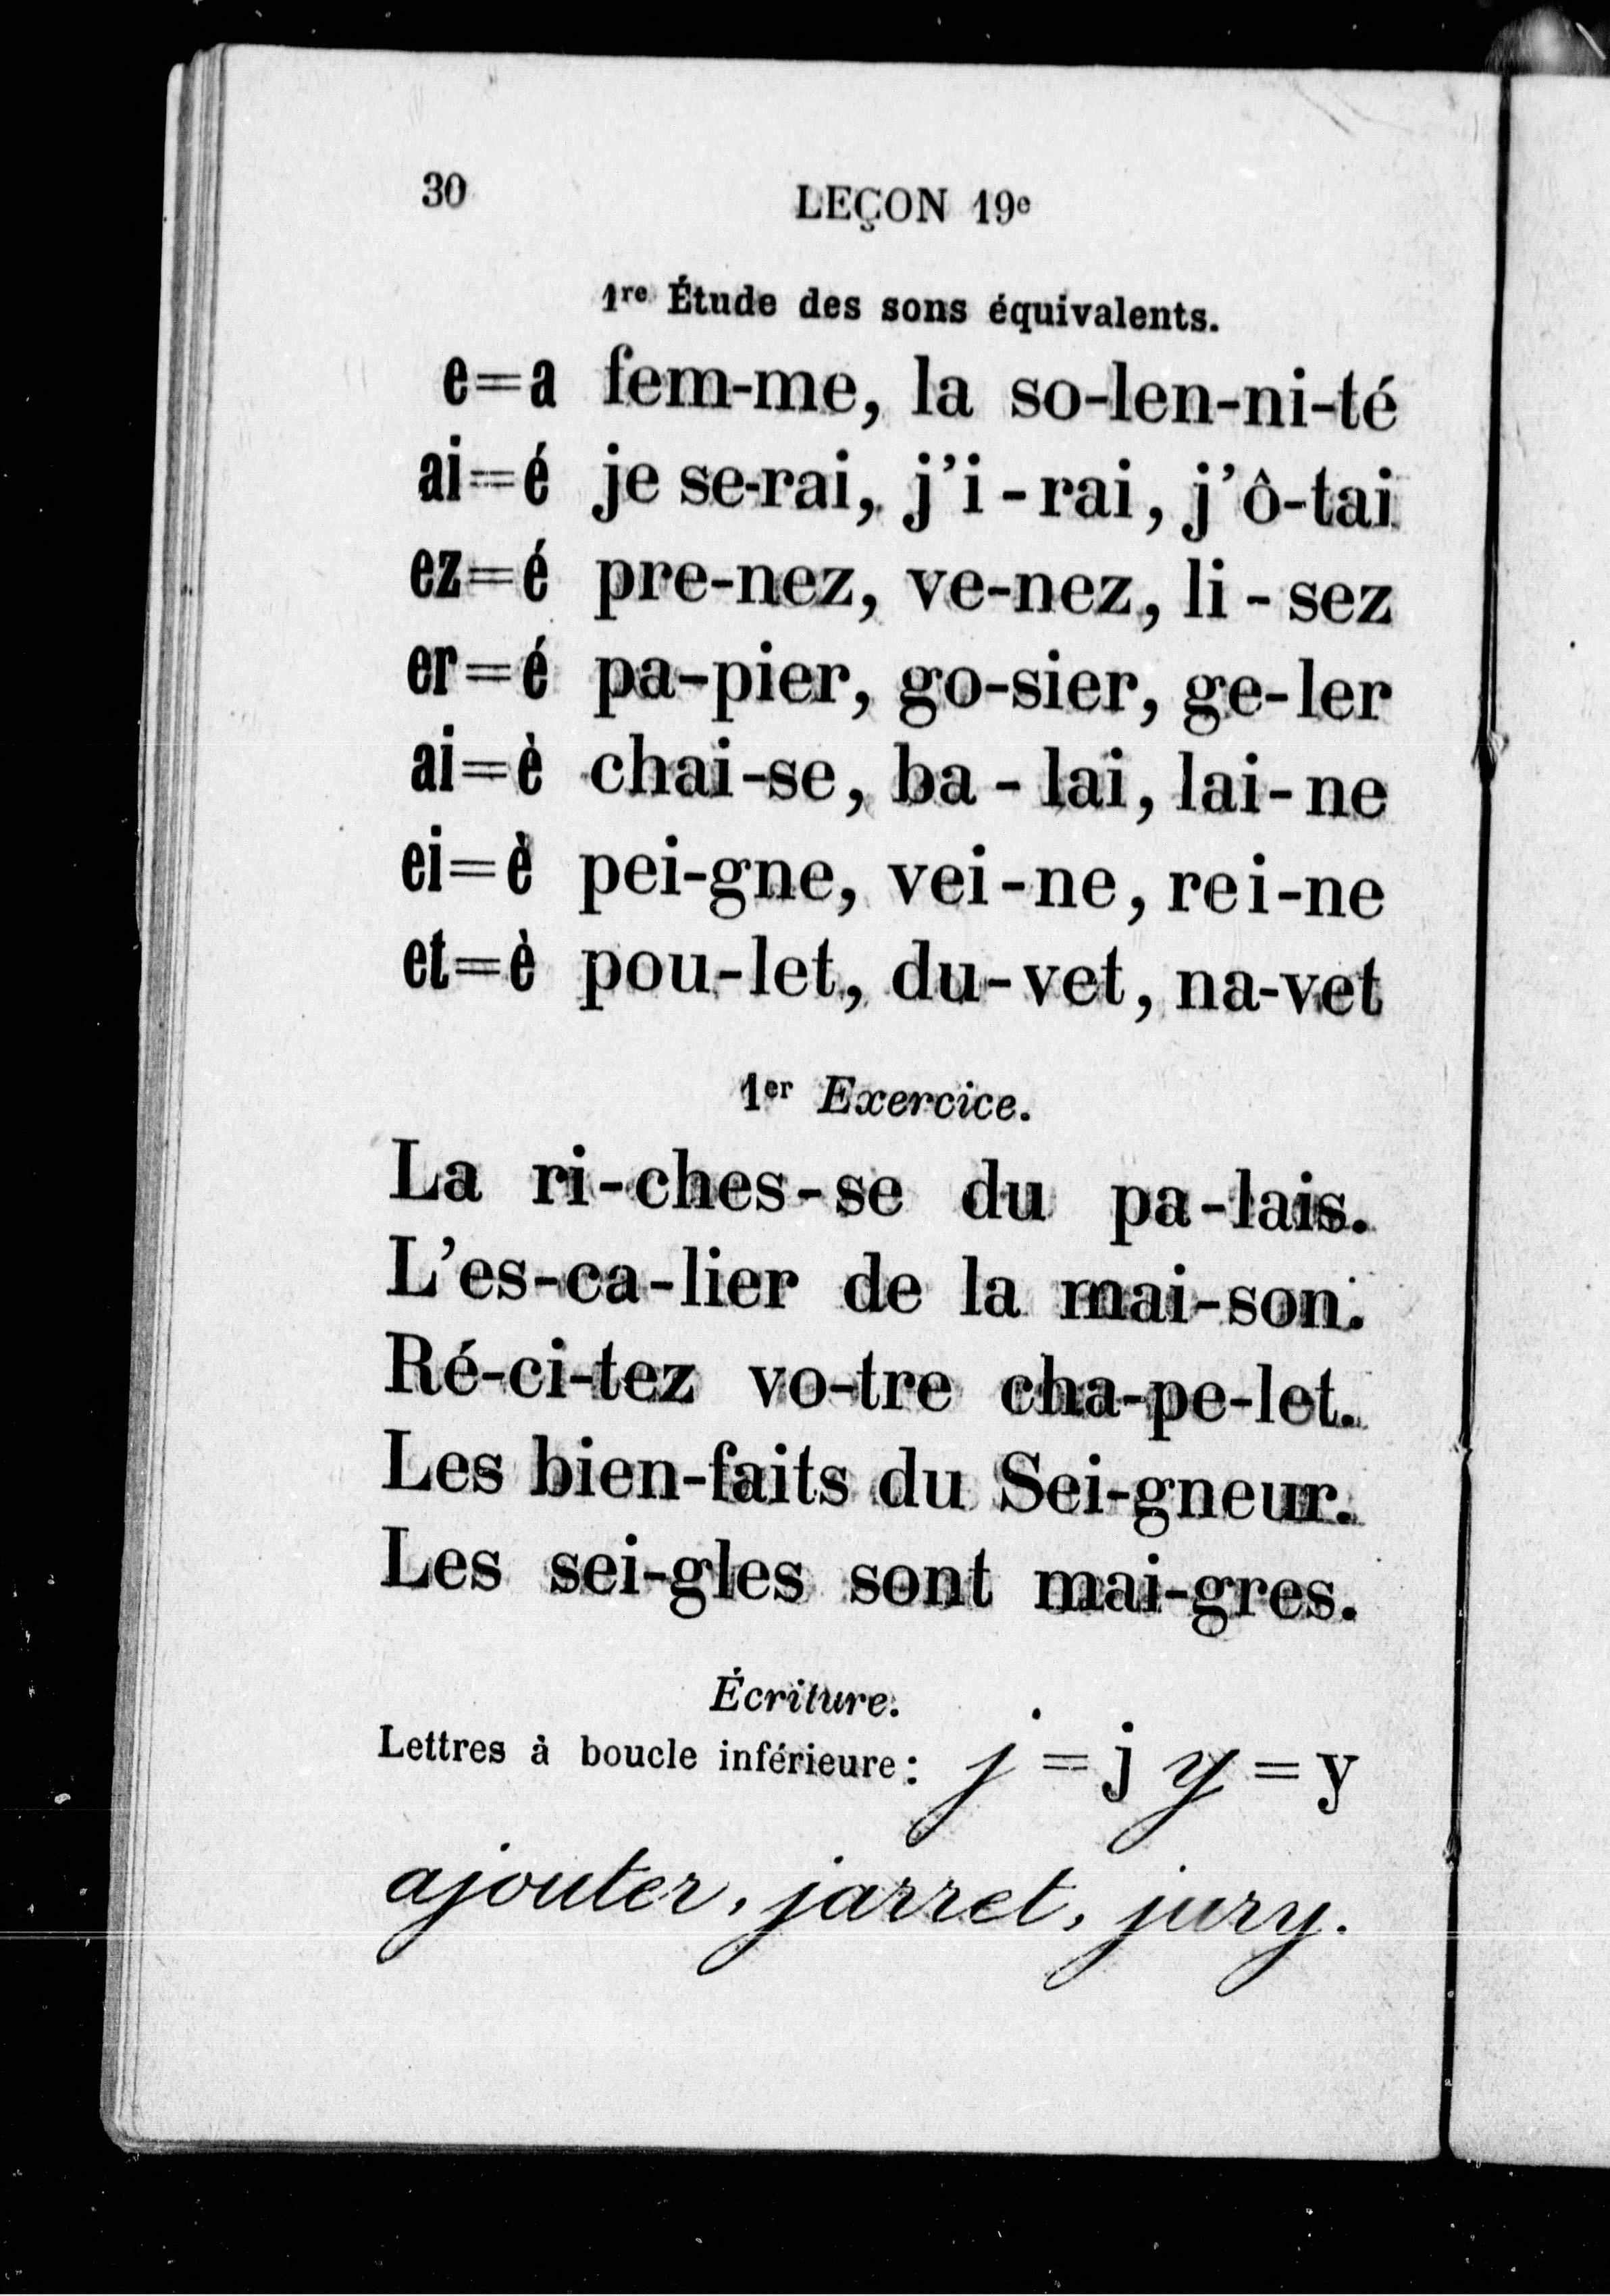 30
LEÇON 19e
1re Étude des sons équivalents.
e=a fem-me, la so-len-ni-té
ai=é je se-rai, j'i-rai, j'ô-tai
ez=é pre-nez, ve-nez, li-sez
er=é pa-pier, go-sier, ge-ler
ai=è chai-se, ba-lai, lai-ne
ei=è pei-gne, vei-ne, rei-ne
et=è pou-let, du-vet, na-vet
1er Exercice.
La ri-ches-se du pa-lais.
L'es-ca-lier de la mai-son.
Ré-ci-tez vo-tre cha-pe-let.
Les bien-faits du Sei-gneur.
Les sei-gles sont mai-gres.
Écriture.
Lettres à boucle inférieure: j=j y=y
ajouter, jarret, jury.